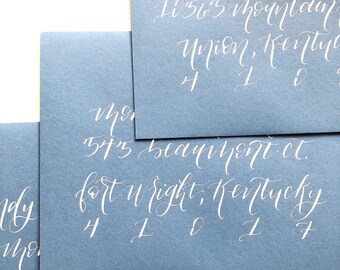 10363 mountain
Union, Kentucky
4 1 0
543 Beaumont ct.
fort Wright, Kentucky
4 1 0 1 7